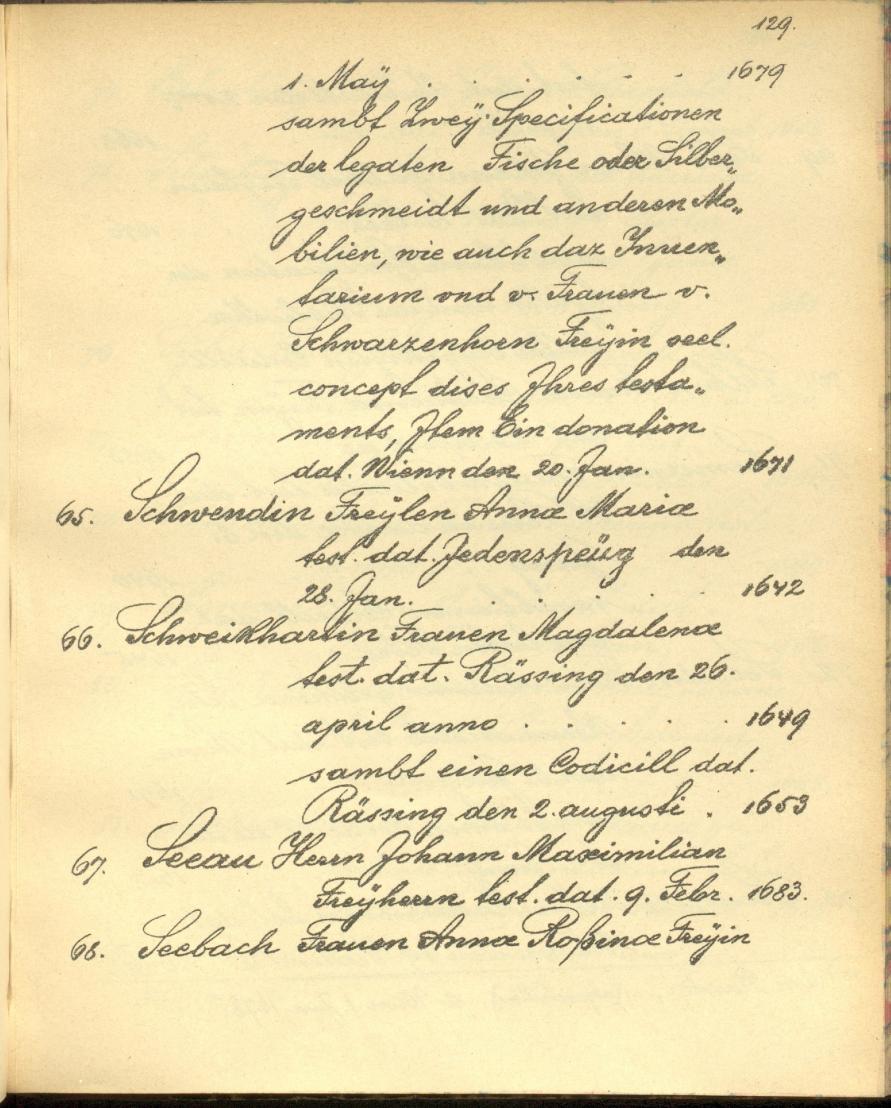 129.
1. Maÿ . . . . . . 1679
sambt Zweÿ Specificationen
der legaten Fische oder Silber„
geschmeidt und anderen Mo„
bilien, wie auch daz Inuen„
tarium vnd v. Frauen v.
Schwarzenhorn Freÿin seel.
concept dises Jhres testa„
ments, Jtem Ein donation
dat. Wienn den 20. Jan. 1671
65. Schwendin Freÿlen Annæ Mariæ
test. dat. Jedenspeüg den
28. Jan. . . . . . 1642
66. Schweikhartin Frauen Magdalenæ
test. dat. Rässing den 26.
april anno . . . . . 1649
sambt einen Codicill dat.
Rässing den 2. augusti . 1653
67. Seeau Herrn Johann Maximilian
Freÿherrn test. dat. 9. Febr. 1683.
68. Seebach Frauen Annæ Roßinæ Freÿin